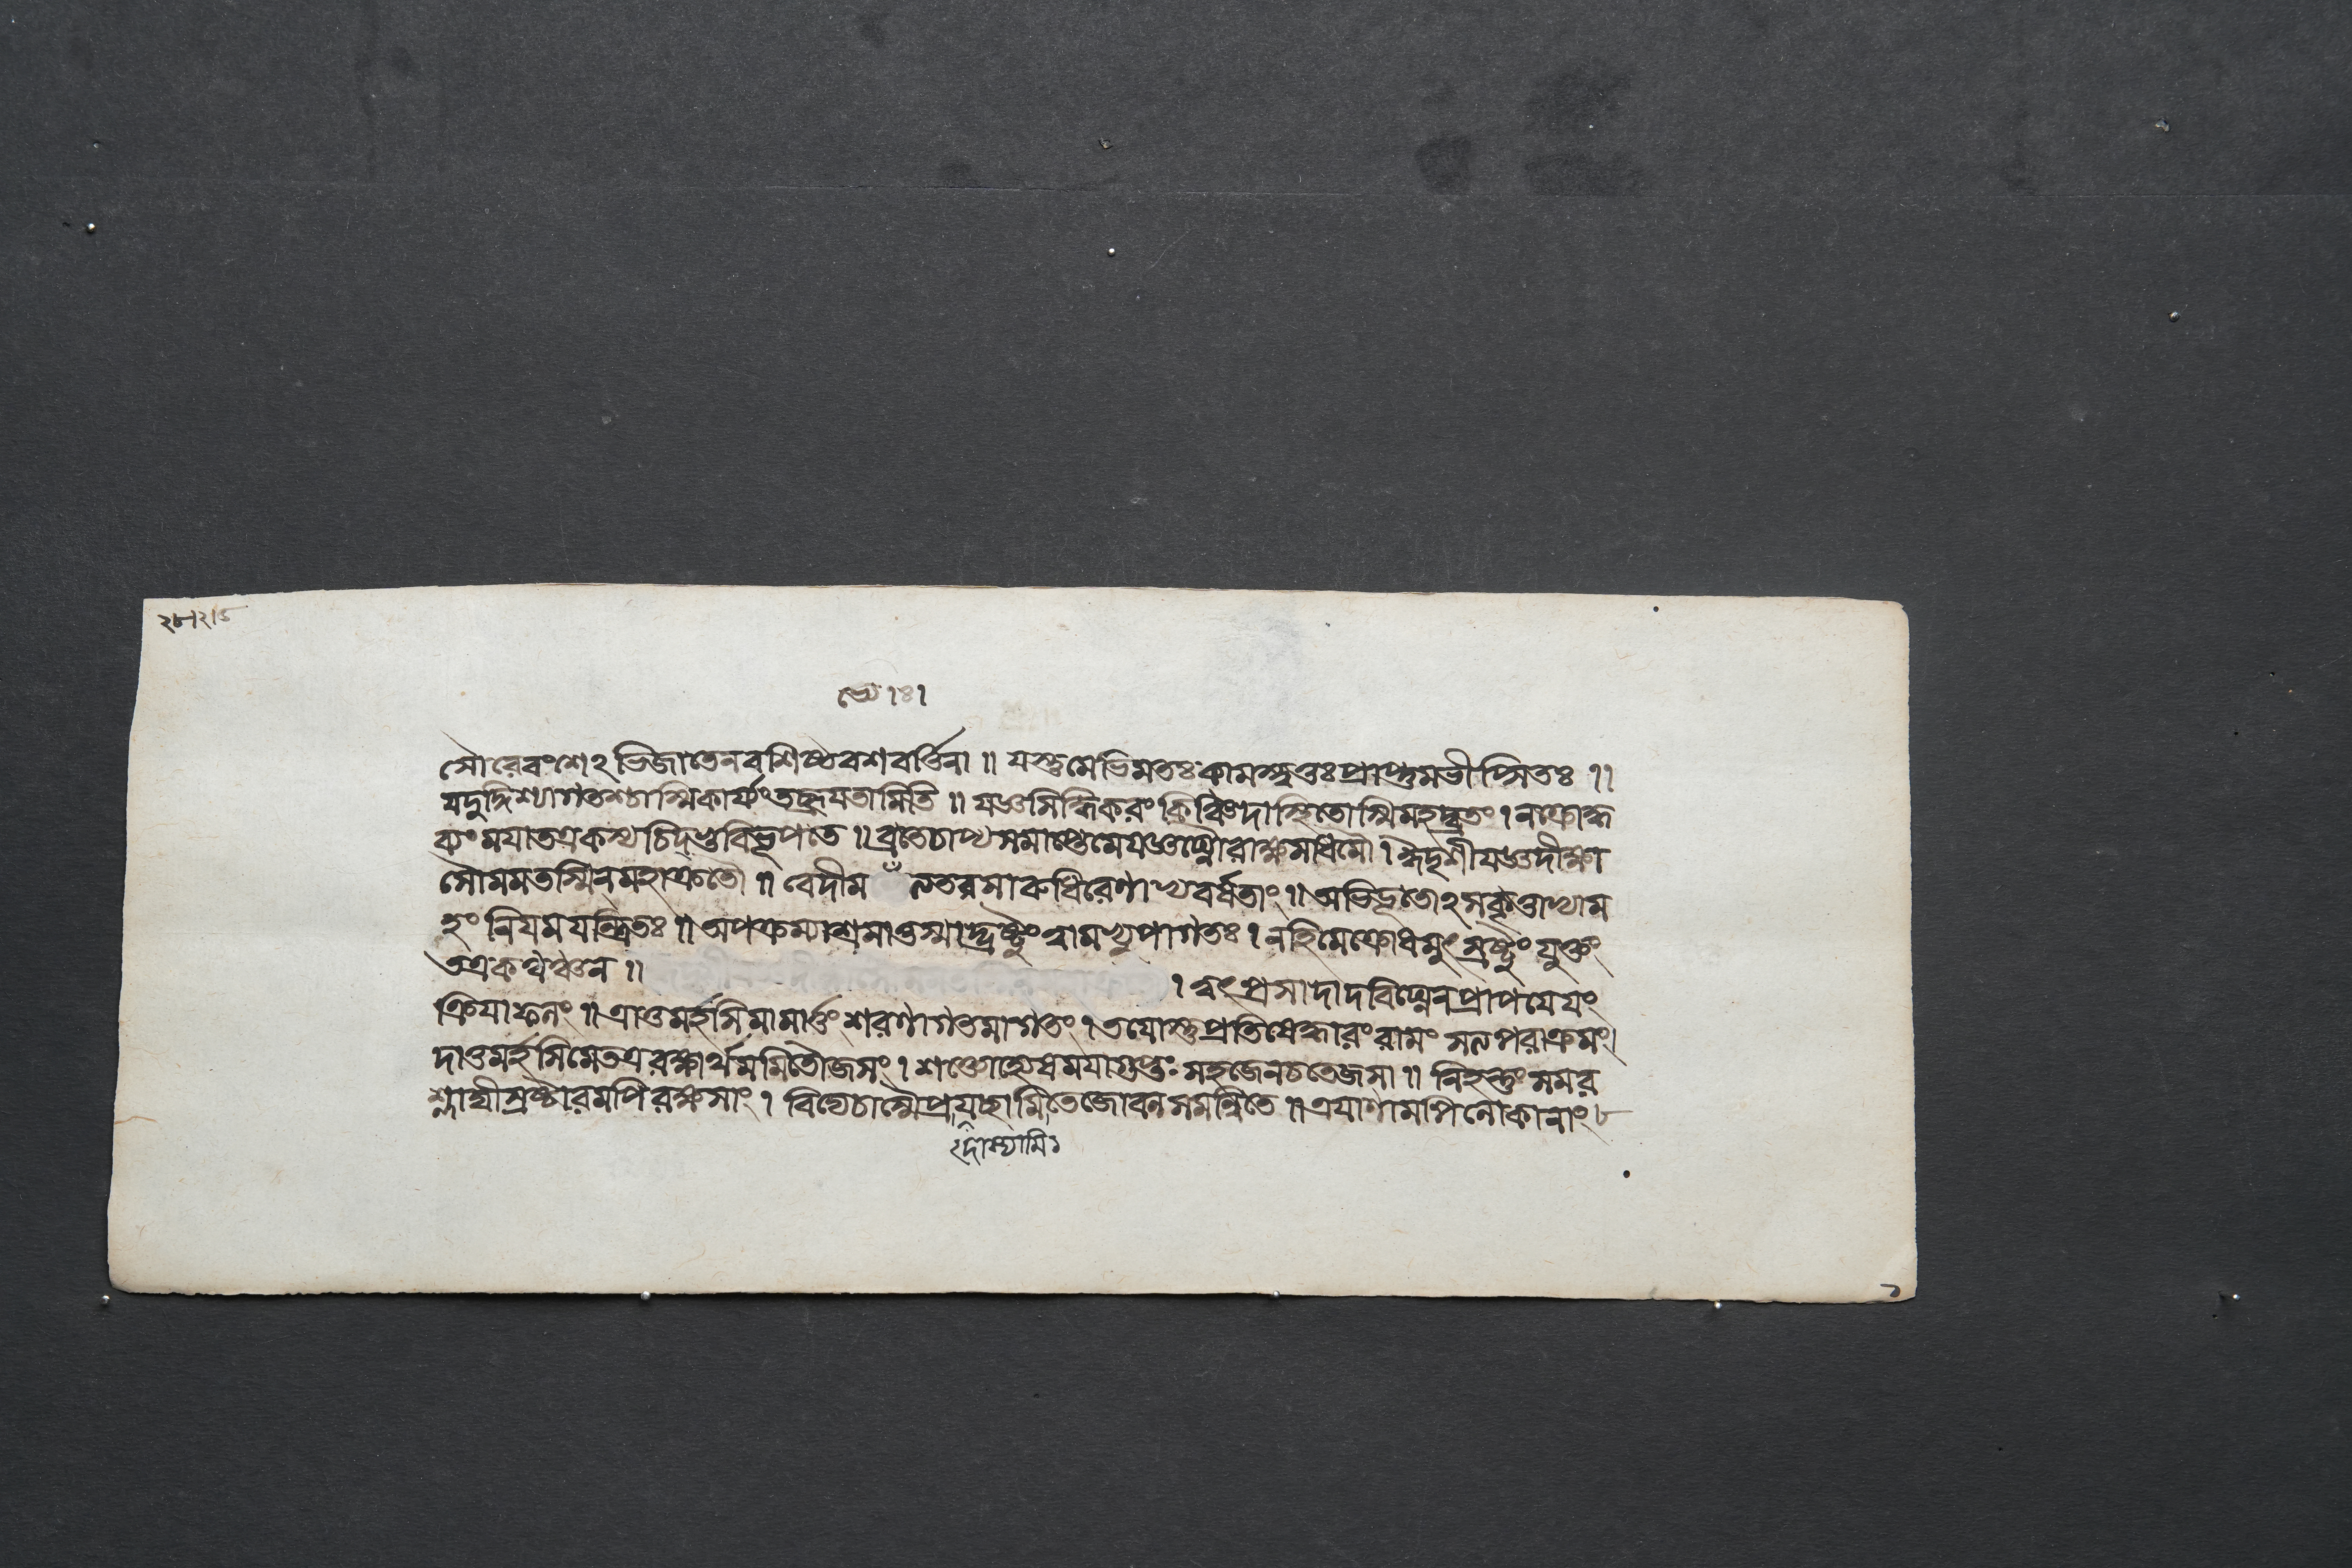 ২৮।২।৫
সৌরেবংশেঽভিজাতেনবশিষ্ঠবশবর্ত্তিনা ॥ যস্তুমেভিমতঃকামস্ত্বত্তঃপ্রাপ্তুমভীপ্সিতঃ ।।
যদুদ্দিশ্যাগতশ্চাস্মিকার্য্যংতচ্ছ্রূযতামিতি ॥ যজ্ঞসিদ্ধিকরংকিঞ্চিদাস্থিতোস্মিমহদ্ব্রতং । নক্রোদ্ধ
ব্যংমযাতত্রকথঞ্চিদপিভূপতে ॥ ব্রতেচাপ্যসমাপ্তেমেযজ্ঞঘ্নৌরাক্ষসাধমৌ ।
সৌমমতস্মিনমহাক্রতৌ ॥ বেদীম নতরসারুধিরেণাপ্যবর্ষতাং ॥ অভিভূতোঽসকৃত্তাভ্যাম
হং নিযমযন্ত্রিতঃ ॥ অপক্রম্যাশ্রমাত্তস্মাদ্দ্রষ্টুংত্বামভ্যুপাগতঃ । নহিমেক্রোধমুৎস্রষ্টুং যুক্তং
তত্রকথঞ্চন ॥
। ত্বৎপ্রসাদাদবিঘ্নেনপ্রাপযেযং
ক্রিযাফলং ॥ ত্রাতুমর্হসিমামার্ত্তংশরণাগতমাগতং । তযোস্তুপ্রতিষেদ্ধারংরামং সত্যপরাক্রমং।
দাতুমর্হসিমেতত্ররক্ষার্থমমিতৌজসং । শক্তোহ্যেষমযাগুপ্তঃ সহজেনচতেজসা ॥ নিহন্তুংসমর
শ্লাঘীস্রষ্টারমপিরক্ষসাং । বিদ্যেচাস্মৈপ্রযচ্ছামিতেজোবলসমন্বিতে ॥ ত্রযাণামপিলোকানাং
দাস্যামি